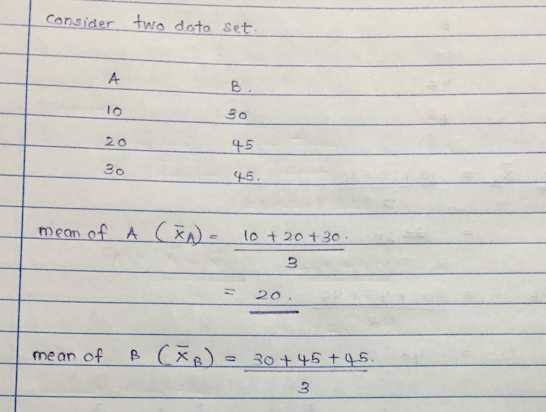 Consider two data set.
A B.
10 30
20 45
30 45.
mean of A (x̄A) = 10 + 20 + 30.
3
= 20.
mean of B (x̄B) = 30 + 45 + 45.
3